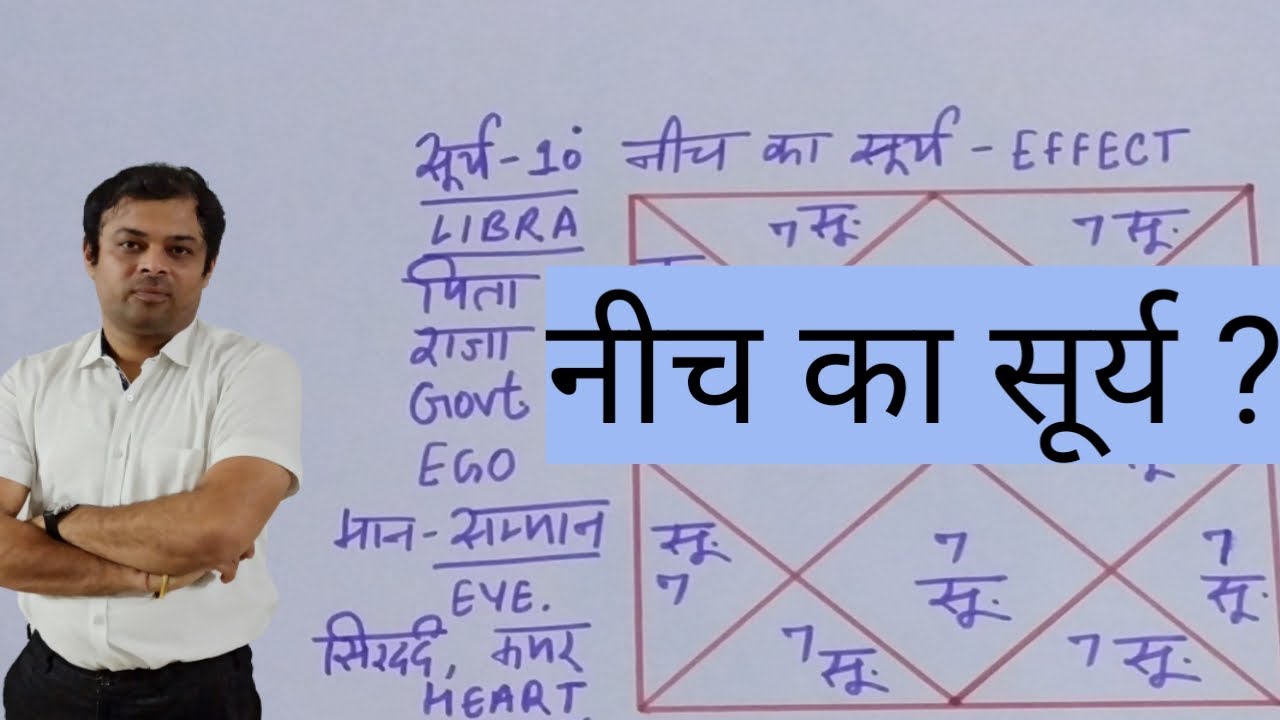 सूर्य-10° नीच का सूर्य - EFFECT
LIBRA
7 सू. 7 सू.
पिता
राजा
Govt.
EGO
नीच का सूर्य ?
सू.
मान-सम्मान
EYE.
सू. 7
7 सू.
7 सू.
सिरदर्द,
HEART
7 सू. 7 सू.